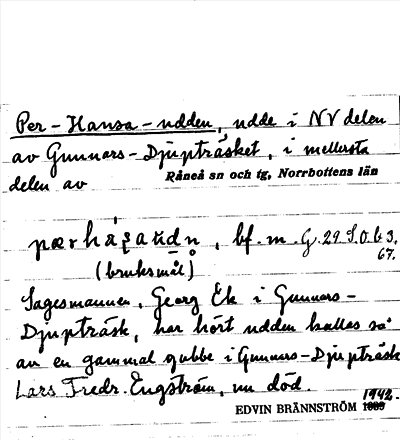 Per-Hansa-udden, udde i NV delen
av Gunnars-Djupträsket, i mellersta
delen av Råneå sn och tg, Norrbottens län
bf. m. G. 29. S. 0. 63.
67.
(bruksmål)
Sagesmannen, Georg Ek i Gunnars-
Djupträsk, har hört udden kallas så
av en gammal gubbe i Gunnars-Djupträsk
Lars Fredr. Engström, nu död.
1942.
EDVIN BRÄNNSTRÖM